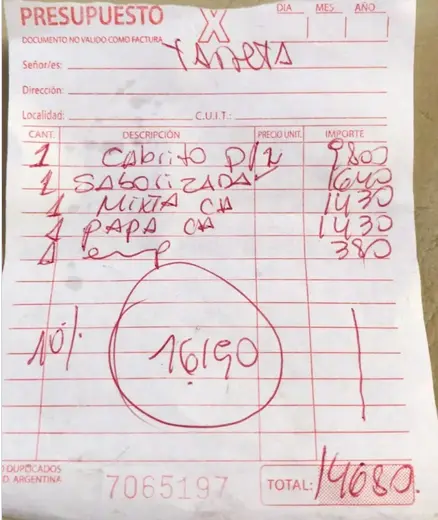 PRESUPUESTO X DIA MES AÑO
DOCUMENTO NO VALIDO COMO FACTURA
TARJETA
Señor/es:
Dirección:
Localidad: C.U.I.T.:
CANT. DESCRIPCIÓN PRECIO UNIT. IMPORTE
1 CABRITO P/2 9800
1 SABORIZADA 1640
1 MIXTA CH 1430
1 PAPA CH 1430
1 emp 380
10% 16190
DUPLICADOS
D. ARGENTINA 7065197 TOTAL: 14680